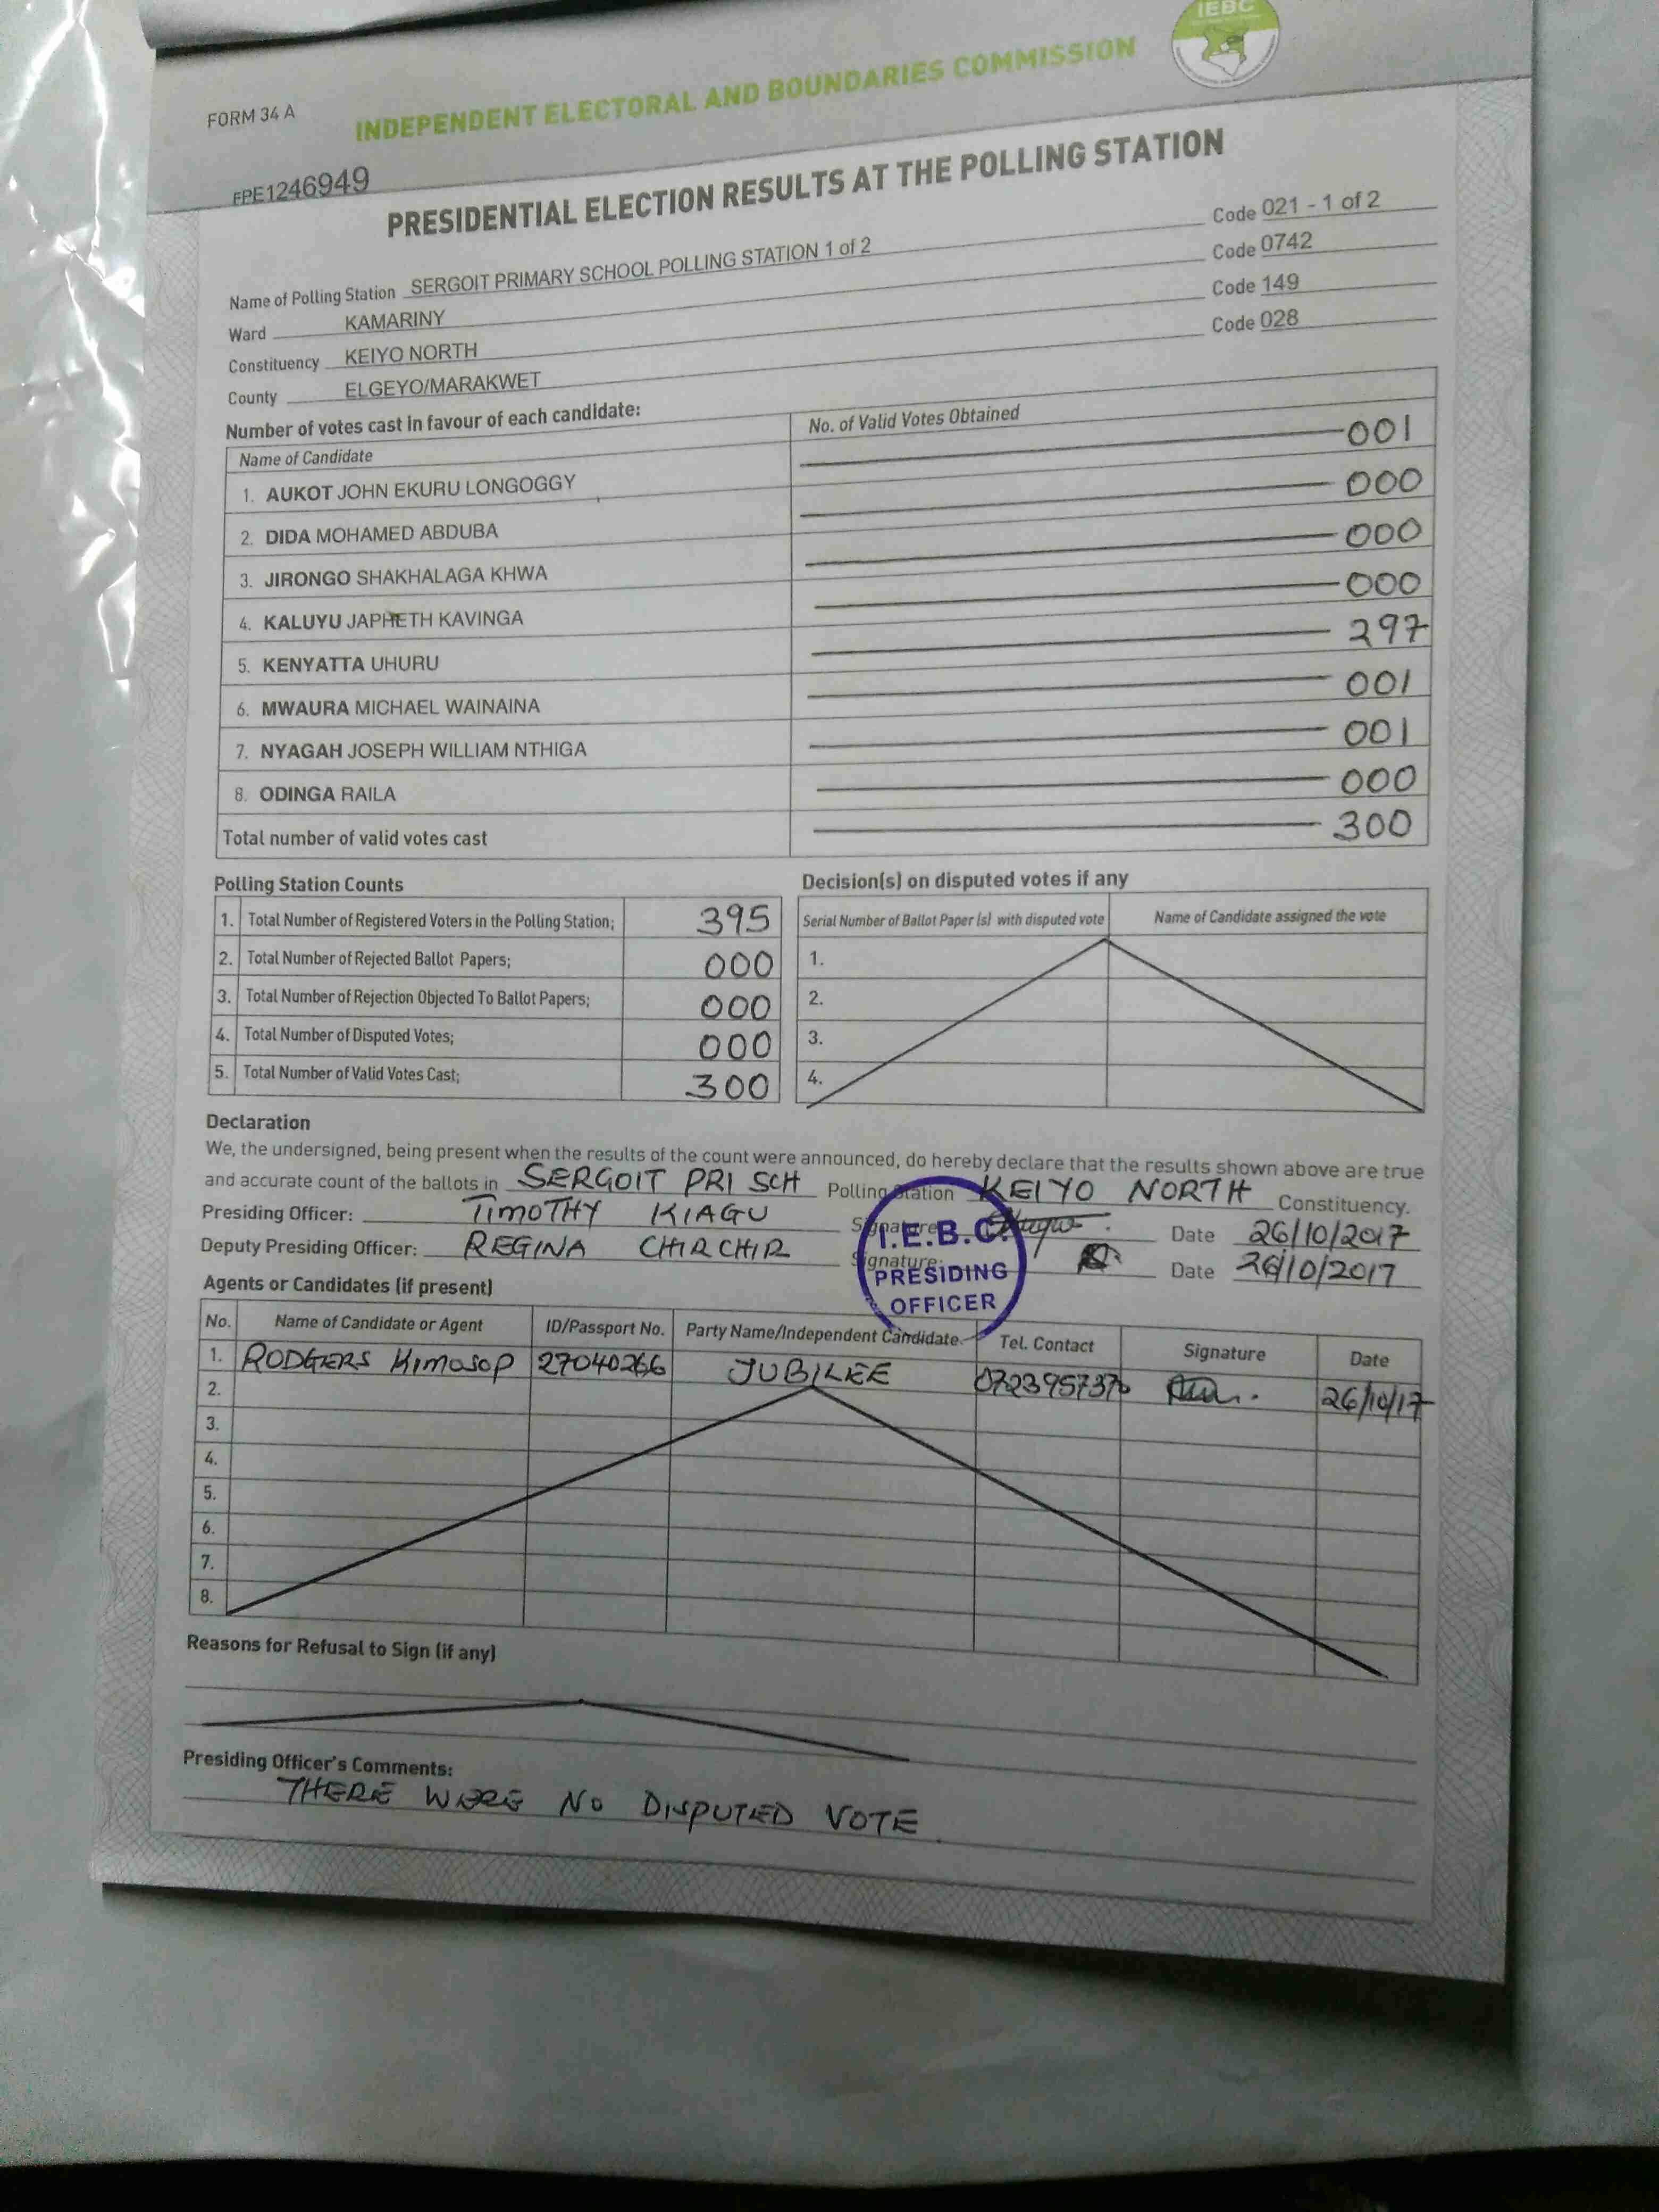 IEBC
FORM 34 A
INDEPENDENT ELECTORAL AND BOUNDARIES COMMISSION
FPE1246949
PRESIDENTIAL ELECTION RESULTS AT THE POLLING STATION
Name of Polling Station SERGOIT PRIMARY SCHOOL POLLING STATION 1 of 2 Code 021 - 1 of 2
Ward KAMARINY Code 0742
Constituency KEIYO NORTH Code 149
County ELGEYO/MARAKWET Code 028
Number of votes cast in favour of each candidate:
Name of Candidate No. of Valid Votes Obtained
1. AUKOT JOHN EKURU LONGOGGY 001
2. DIDA MOHAMED ABDUBA 000
3. JIRONGO SHAKHALAGA KHWA 000
4. KALUYU JAPHETH KAVINGA 000
5. KENYATTA UHURU 297
6. MWAURA MICHAEL WAINAINA 001
7. NYAGAH JOSEPH WILLIAM NTHIGA 001
8. ODINGA RAILA 000
Total number of valid votes cast 300
Polling Station Counts
1. Total Number of Registered Voters in the Polling Station; 395
2. Total Number of Rejected Ballot Papers; 000
3. Total Number of Rejection Objected To Ballot Papers; 000
4. Total Number of Disputed Votes; 000
5. Total Number of Valid Votes Cast; 300
Decision(s) on disputed votes if any
Serial Number of Ballot Paper (s) with disputed vote Name of Candidate assigned the vote
1.
2.
3.
4.
Declaration
We, the undersigned, being present when the results of the count were announced, do hereby declare that the results shown above are true
and accurate count of the ballots in SERGOIT PRI SCH Polling Station KEIYO NORTH Constituency.
Presiding Officer: TIMOTHY KIAGU Signature: Date 26/10/2017
Deputy Presiding Officer: REGINA CHIRCHIR Signature: Date 26/10/2017
I.E.B.C.
PRESIDING
OFFICER
Agents or Candidates (if present)
No. Name of Candidate or Agent ID/Passport No. Party Name/Independent Candidate Tel. Contact Signature Date
1. RODGERS Kimosop 27040266 JUBILEE 0723957376 26/10/17
2.
3.
4.
5.
6.
7.
8.
Reasons for Refusal to Sign (if any)
Presiding Officer's Comments:
THERE WERE NO DISPUTED VOTE.